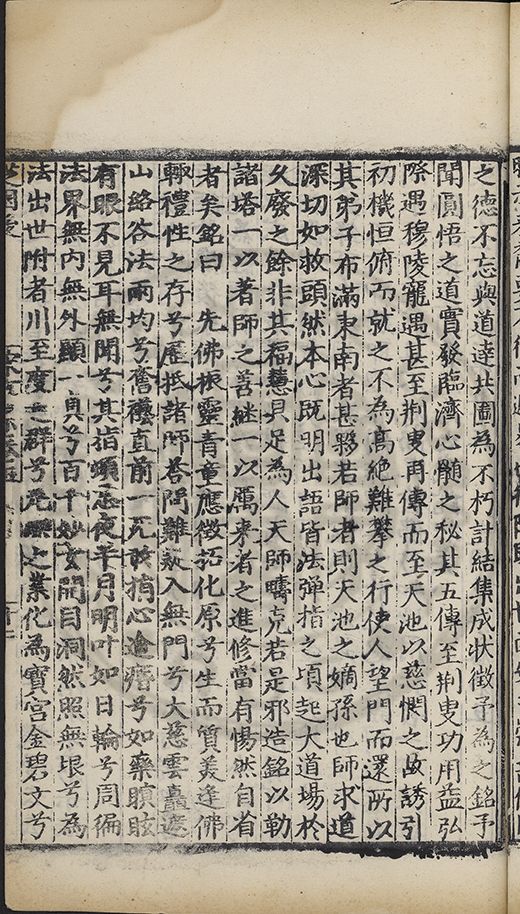 之德不忘與道達共圖為不朽計結集成狀徵予為之銘予
聞圓悟之道實發臨濟心髓之秘其五傳至荆叟功用益弘
際遇穆陵寵遇甚至荆叟再傳而至天池以慈憫之故誘引
初機恒俯而就之不為高絕難攀之行使人望門而還所以
其弟子布滿東南者甚夥若師者則天池之嫡孫也師求道
深切如救頭然本心既明出語皆法彈指之頃起大道場於
久廢之餘非其福慧具足為人天師疇克若是邪造銘以勒
諸塔一以著師之善繼一以厲來者之進修當有惕然自省
者矣銘曰 先佛振靈青童應徵拓化原兮生而質美逢佛
輙禮性之存兮歷抵諸師荅問難 入無門兮大慈雲矗遮
山絡谷法兩均兮奮 直前一死敢捎心 兮如藥瞑眩
有眼不見耳無聞兮其指 忘夜半月明叶如日輪兮周徧
法界無内無外顯一真兮百千妙玄開目洞然照無垠兮為
法出世附者川至度 群兮 之業化為寶宮金碧文兮